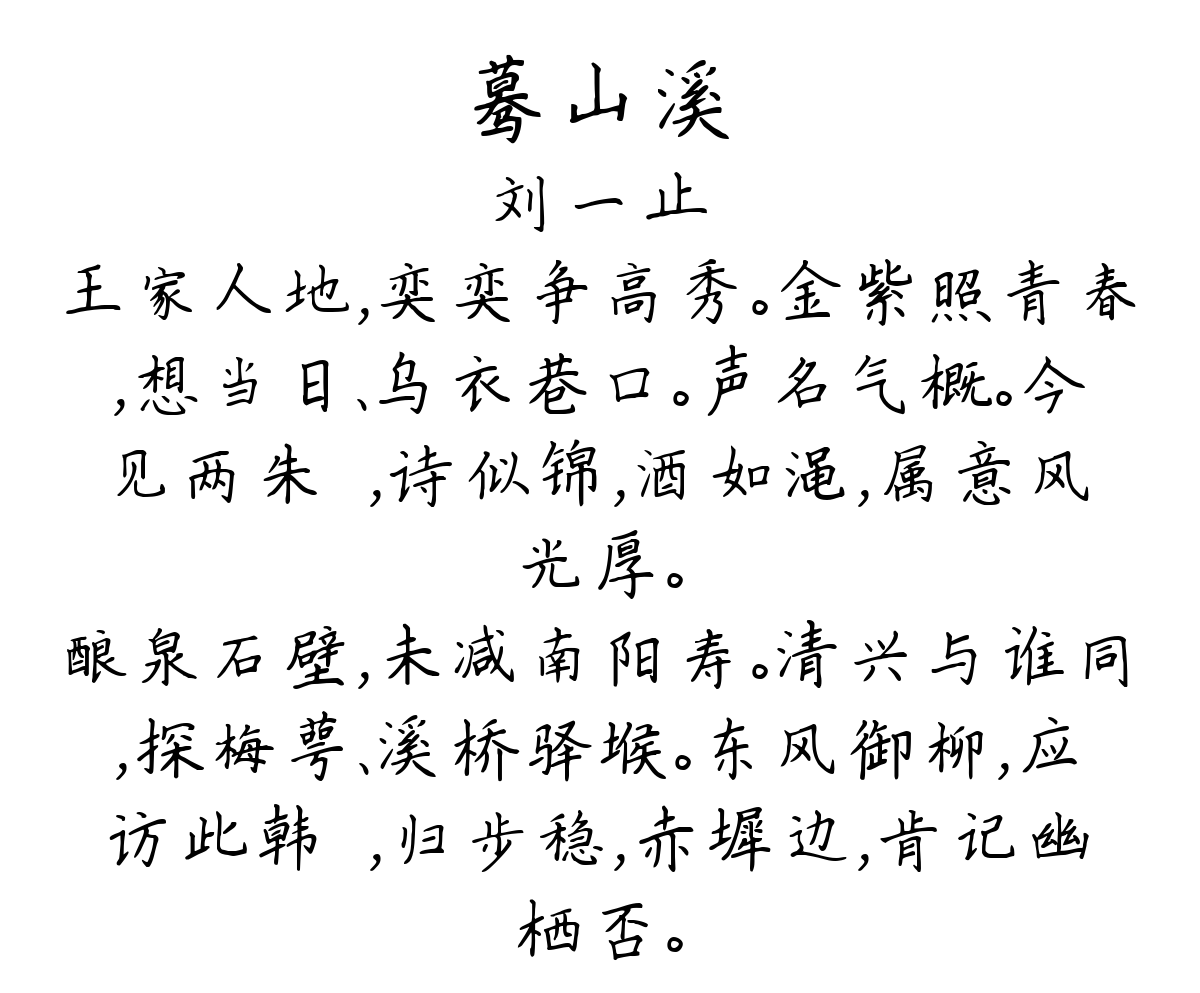 蓦山溪
刘一止
王家人地,奕奕争高秀。金紫照青春
,想当日、乌衣巷口。声名气概。今
见两朱 ,诗似锦,酒如渑,属意风
光厚。
酿泉石壁,未减南阳寿。清兴与谁同
,探梅萼、溪桥驿堠。东风御柳,应
访此韩 ,归步稳,赤墀边,肯记幽
栖否。